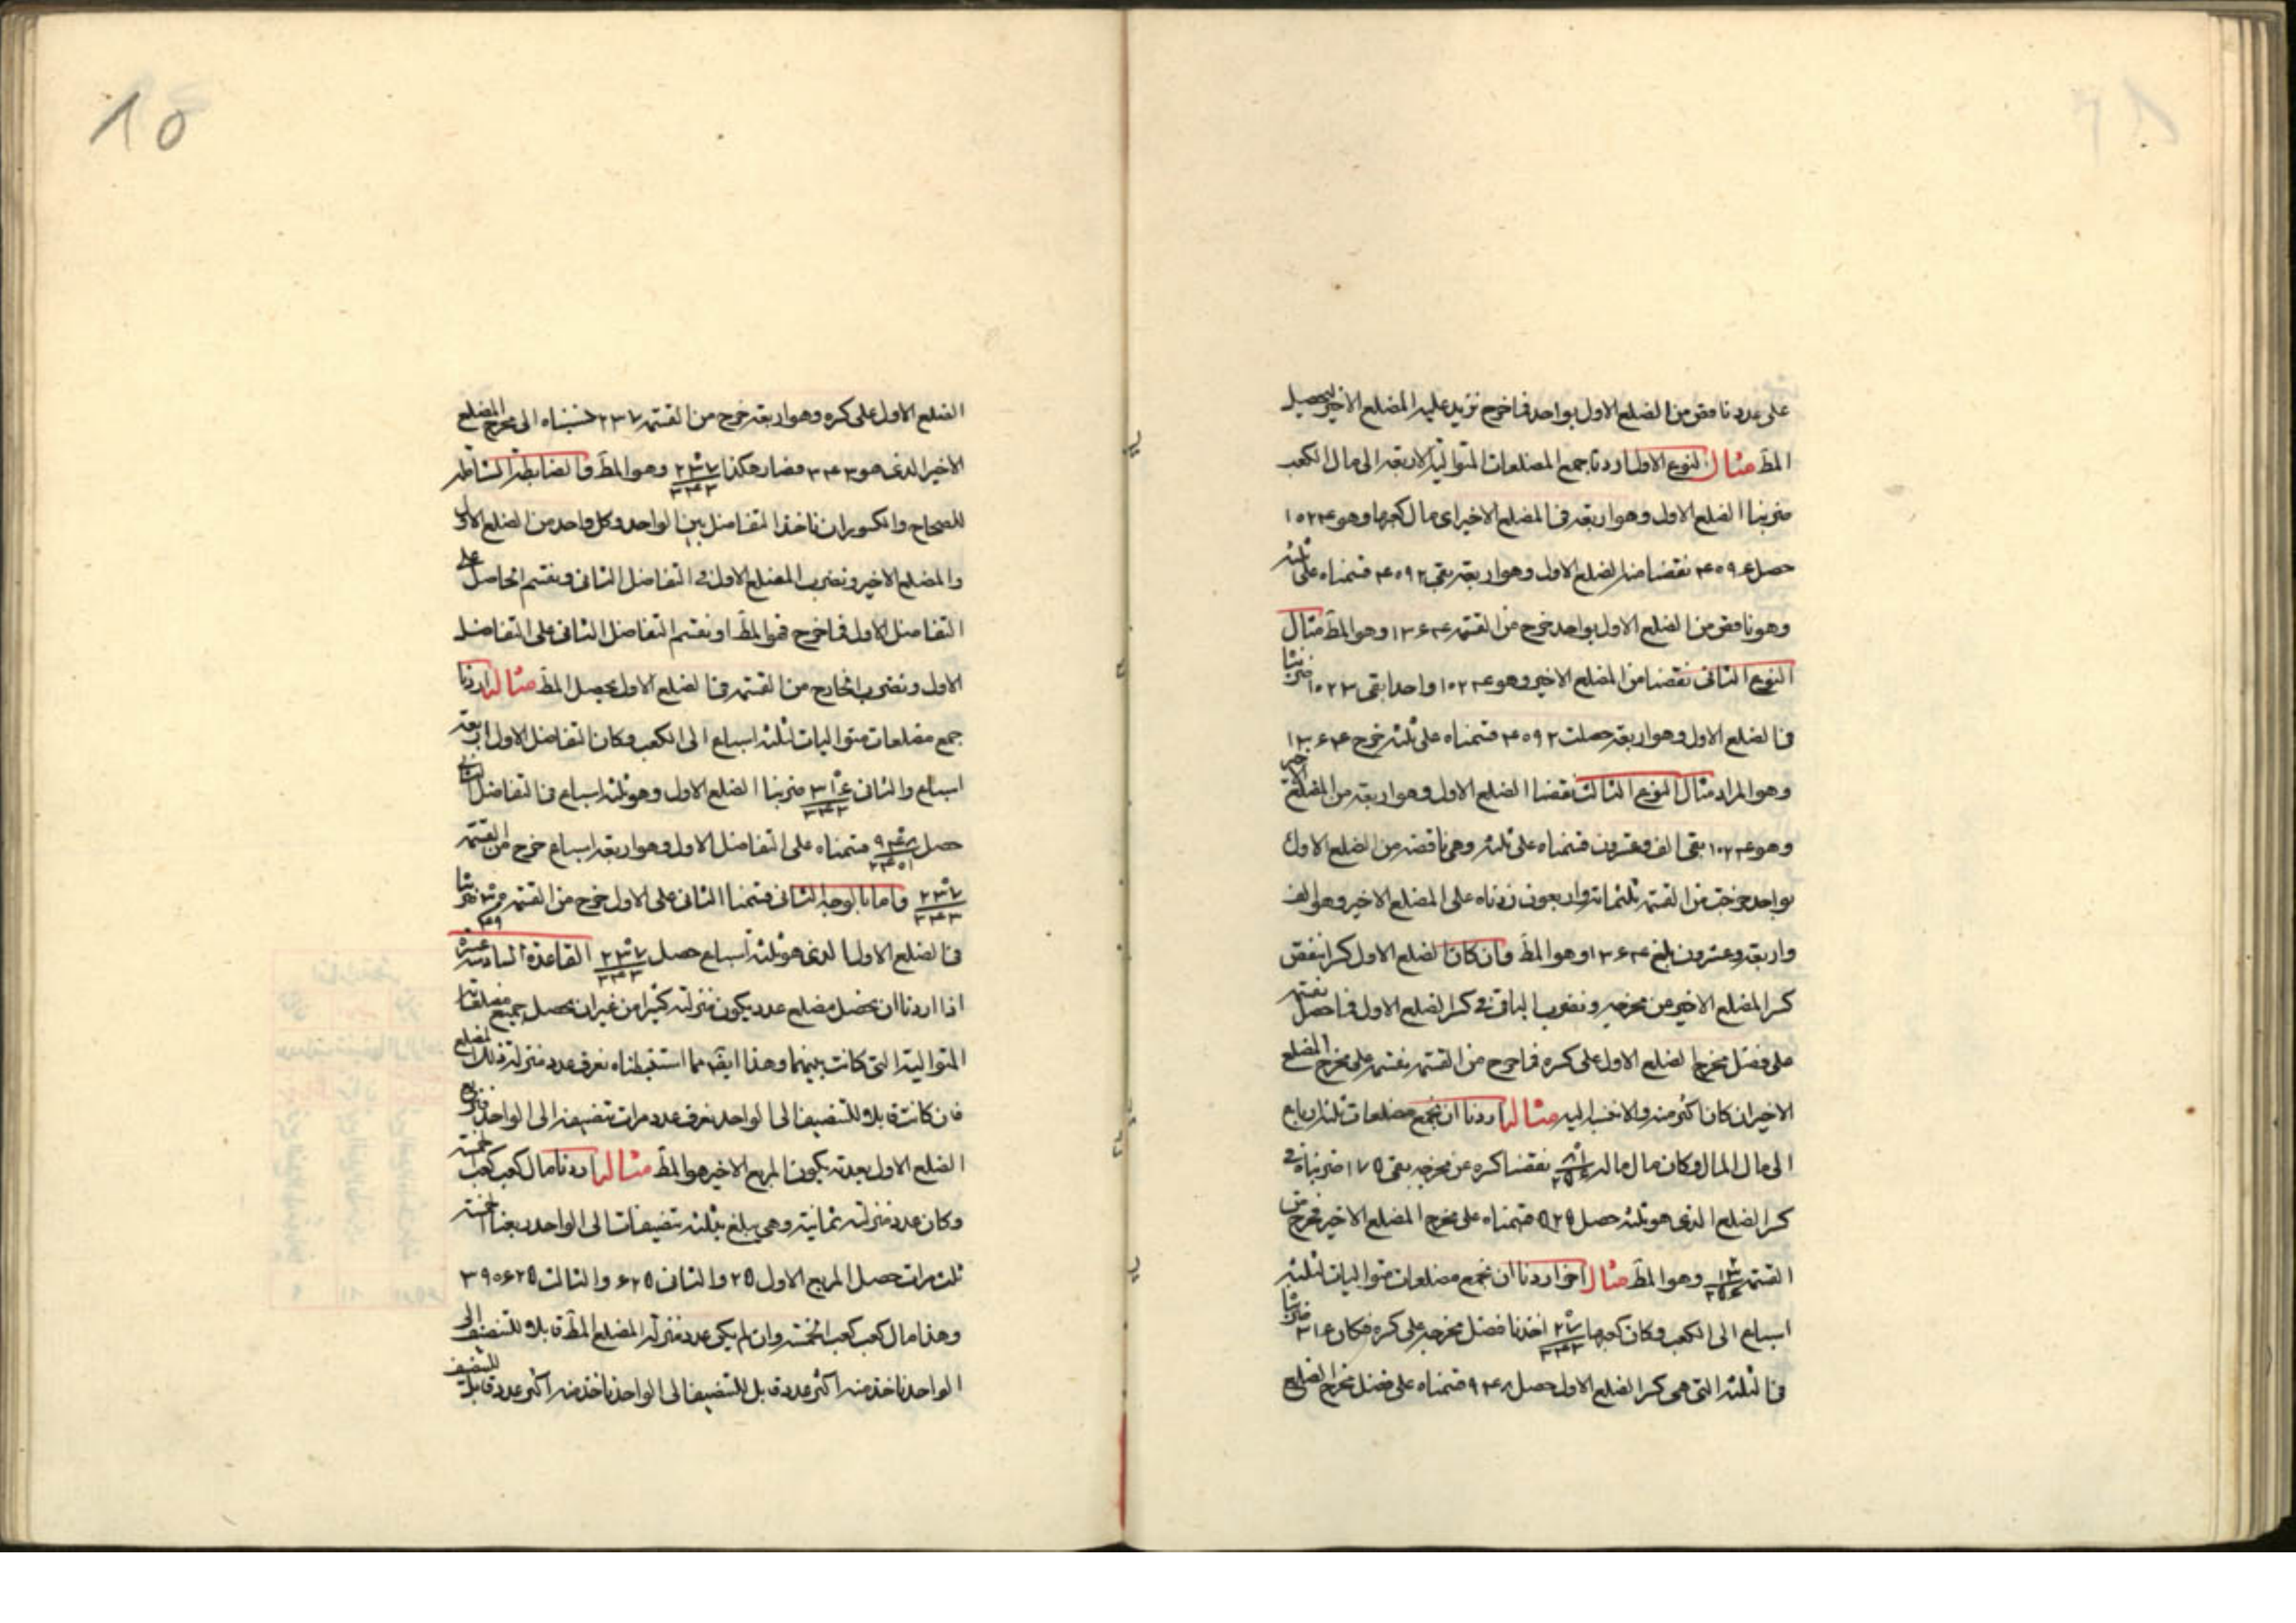 على عدد ناقص من الضلع الاول بواحد فما خرج نزيد عليه المضلع الاخير ليحصل
المط مثال النوع الاول اردنا جمع المضلعات المتوالية لاربعة الى مال الكعب
ضربنا الضلع الاول وهو اربعة في المضلع الاخير اى مال كعبها وهو ١٠٢۴
حصل ۴٠٩۶ نقصنا منه الضلع الاول وهو اربعة بقى ۴٠٩٢ قسمناه على ثلثة
وهو ناقص من الضلع الاول بواحد خرج من القسمة ١٣۶۴ وهو المط مثال
النوع الثانى نقصنا من المضلع الاخير وهو ١٠٢۴ واحدا بقى ١٠٢٣ ضربنا
فى الضلع الاول وهو اربعة حصلت ۴٠٩٢ قسمناه على ثلثة خرج ١٣۶۴
وهو المراد مثال النوع الثالث نقصنا الضلع الاول وهو اربعة من المضلع الاخير
وهو ١٠٢۴ بقى الف وعشرون قسمناه على ثلثة وهى ناقصة من الضلع الاول
بواحد خرجت من القسمة ثلثمائة واربعون زدناه على المضلع الاخير وهو الف
واربعة وعشرون بلغ ١٣۶۴ وهو المط وان كان الضلع الاول كسرا ننقص
كسر المضلع الاخير من مخرجه ونضرب الباقى فى كسر الضلع الاول فما حصل نقسمه
على فضل مخرج الضلع الاول على كسره فما خرج من القسمة نقسمه على مخرج المضلع
الاخير ان كان اكثر منه والا ننسب اليه مثاله اردنا ان نجمع مضلعات ثلثة ارباع
الى مال المال وكان مال ماله ٨١ ٢٥۶ نقصنا كسره عن مخرجه بقى ١٧٥ ضربناه فى
كسر الضلع الذى هو ثلثة حصل ٥٢٥ قسمناه على مخرج المضلع الاخير فخرج من
القسمة وهو المط مثال اخر اردنا ان نجمع مضلعات متواليات لثلثة
اسباع الى الكعب وكان كعبها ٢٧ ٣۴٣ اخذنا فضل مخرجه على كسره فكان ٣١۶ ضربنا
فى الثلثة التى هى كسر الضلع الاول حصل ٩۴٨ قسمناه على فضل مخرج الضلع
١٥
الضلع الاول على كسره وهو اربعة خرج من القسمة ٢٣٧ نسبناه الى مخرج المضلع
الاخير الذى هو ٣۴٣ فصار هكذا ٢٣٧ ٣۴٣ وهو المط والضابطة الشاملة
للصحاح والكسور ان ناخذ التفاضل بين الواحد وكل واحد من الضلع الاول
والمضلع الاخير ونضرب الضلع الاول فى التفاضل الثانى ونقسم الحاصل على
التفاضل الاول فما خرج فهو المط او نقسم التفاضل الثانى على التفاضل
الاول ونضرب الخارج من القسمة فى الضلع الاول يحصل المط مثاله اردنا
جمع مضلعات متواليات لثلثة اسباع الى الكعب وكان التفاضل الاول اربعة
اسباع والثانى ٣١۶ ٣۴٣ ضربنا الضلع الاول وهو ثلثة اسباع فى التفاضل الثانى
حصل ٩۴٨ ٢۴٠١ قسمناه على التفاضل الاول وهو اربعة اسباع خرج من القسمة
٢٣٧ ٣۴٣ واما بالوجه الثانى قسمنا الثانى على الاول خرج من القسمة ضربنا
فى الضلع الاول الذى هو ثلثة اسباع حصل ٢٣٧ ٣۴٣ القاعدة السادسة عشرة
اذا اردنا ان نحصل مضلع عدد يكون منزلته كثيرا من غير ان نحصل جميع مضلعاته
المتوالية التى كانت بينهما وهذا ايضا مما استنبطناه نعرف عدد منزلة ذلك المضلع
فان كانت قابلا للتنصيف الى الواحد نعرف عدد مرات تنصيفه الى الواحد فنربع
الضلع الاول بعدته يكون المربع الاخير هو المط مثاله اردنا مال كعب كعب خمسة
وكان عدد منزلته ثمانية وهى يبلغ بثلثة تنصيفات الى الواحد ربعنا الخمسة
ثلث مرات حصل المربع الاول ٢٥ والثانى ۶٢٥ والثالث ٣٩٠۶٢٥
وهذا مال كعب كعب الخمسة وان لم يكن عدد منزلة المضلع المط قابلا للتنصيف الى
الواحد ناخذ منه اكثر عدد قابل للتنصيف الى الواحد ناخذ منه اكثر عدد قابل للتنصيف